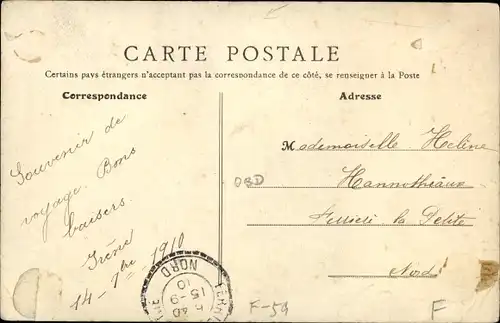 CARTE POSTALE
Certains pays étrangers n'acceptant pas la correspondance de ce côté, se renseigner à la Poste
Correspondance
Adresse
Souvenir de
voyage Bons
baisers.
Irène
14-7bre 1910
Mademoiselle Heline
Ferrière la Petite
Nord
NORD
15-9
10
F-59
F